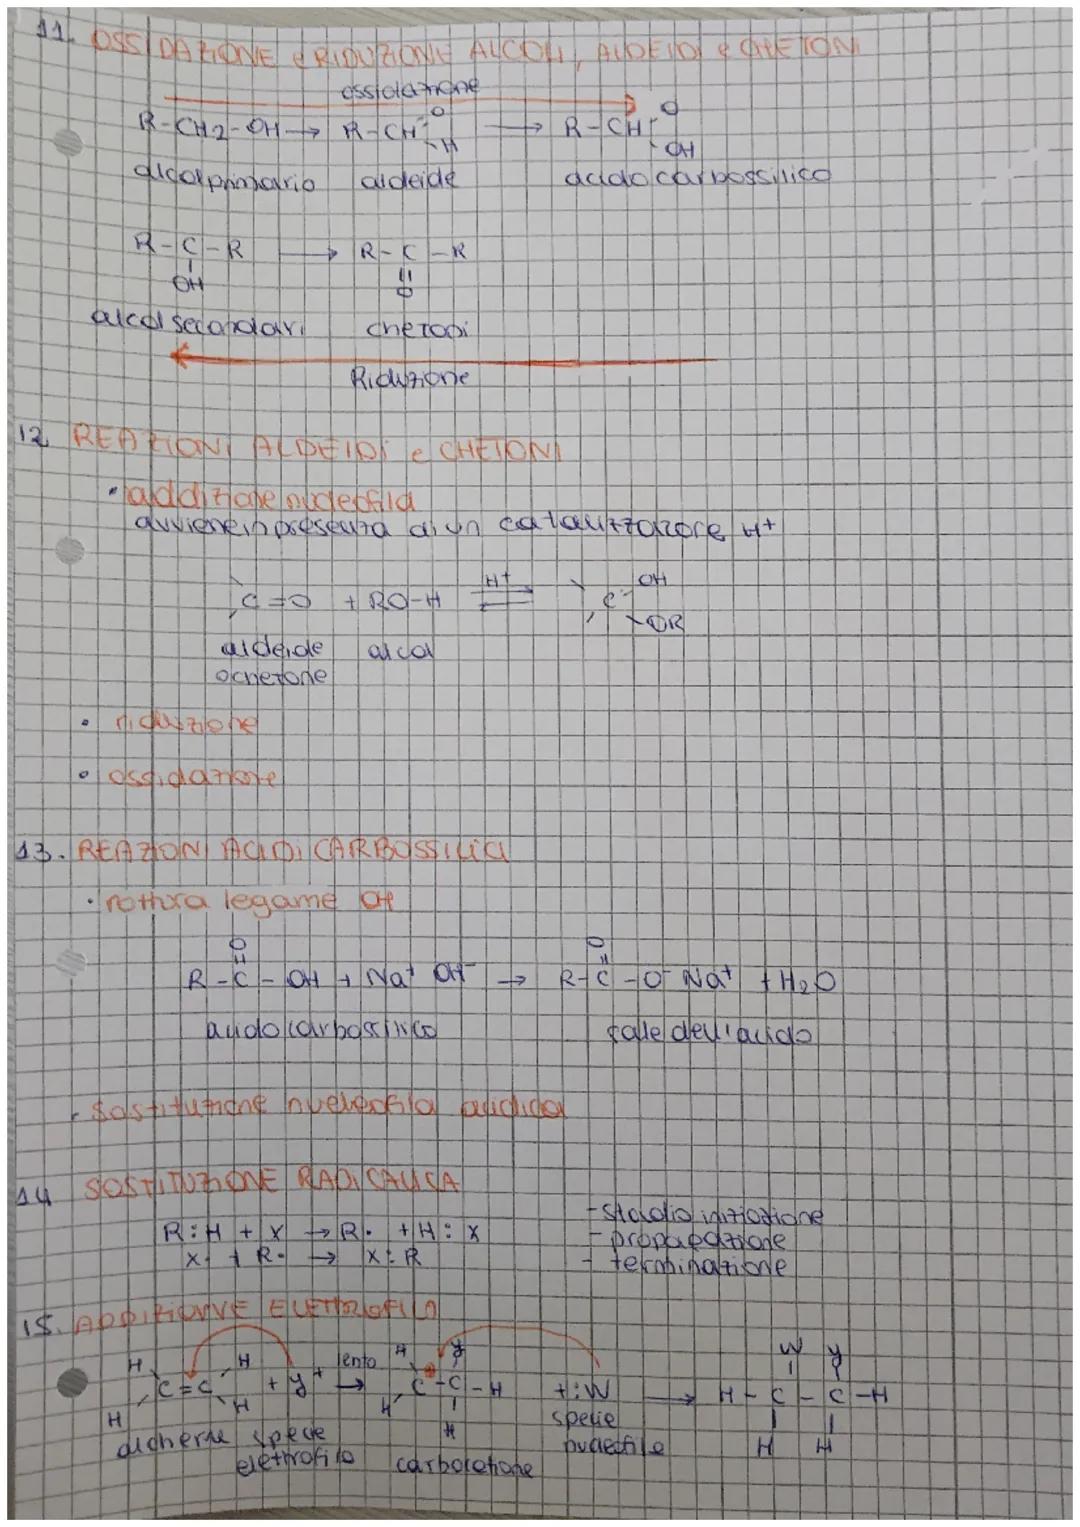 11. OSSIDAZIONE e RIDUZIONE ALCOLI, ALDEIDI e CHETONI
ossidazione
R-CH2-OH → R-CH=O -H → R-CH=O -OH
alcol primario aldeide acido carbossilico
R-C-R → R-C-R
OH O
alcol secondari chetoni
Riduzione
12. REAZIONI ALDEIDI e CHETONI
• addizione nucleofila
avviene in presenza di un catalizzatore H+
C=O + RO-H H+ ⇌ C OH
OR
aldeide alcol
o chetone
• riduzione
• ossidazione
13. REAZIONI ACIDI CARBOSSILICI
• rottura legame OH
O O
R-C-OH + Na+ OH- → R-C-O- Na+ + H2O
acido carbossilico sale dell'acido
• sostituzione nucleofila acidica
14 SOSTITUZIONE RADICALICA
R:H + X → R• + H:X
X• + R• → X:R
- stadio iniziazione
- propagazione
- terminazione
15. ADDIZIONE ELETTROFILA
H H lento H y W y
C=C + y+ → C-C-H + :W → H-C-C-H
H H H H H H
alchene specie elettrofilo carbocatione specie nucleofile